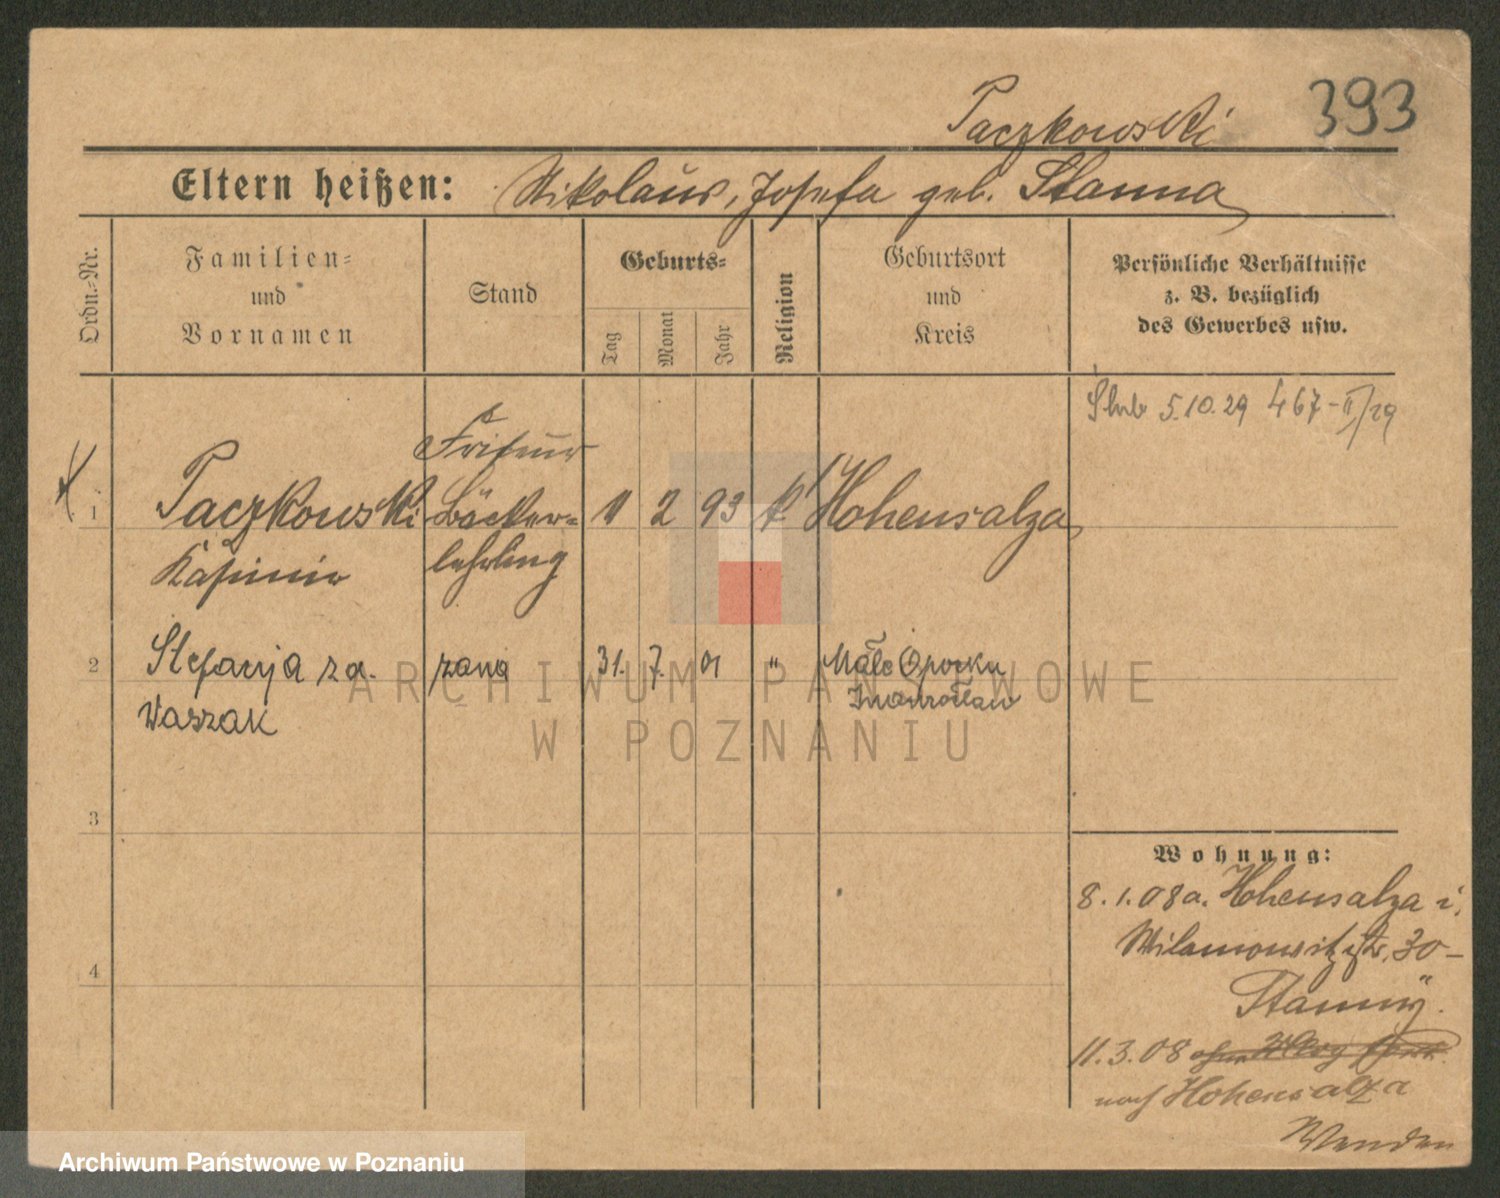 Paczkowski 393
Eltern heißen: Nikolaus, Josefa geb. Stanna
Ordn.-Nr.
Familien-
und
Vornamen
Stand
Geburts-
Tag
Monat
Jahr
Religion
Geburtsort
und
Kreis
Persönliche Verhältnisse
z. B. bezüglich
des Gewerbes usw.
Ślub 5.10.29 467-II/29
Friseur
1 Paczkowski Bäcker- 2 93 k. Hohensalza
Kasimir lehrling
2 Stefanja za. żona 31. 7. 01 " Małe Oporku
Waszak Inowrocław
ARCHIWUM PAŃSTWOWE
W POZNANIU
3
Wohnung:
8.1.08 a. Hohensalza i.
Wilamowitzstr. 30-
4
11.3.08
nach Hohensalza
Wenden
Archiwum Państwowe w Poznaniu